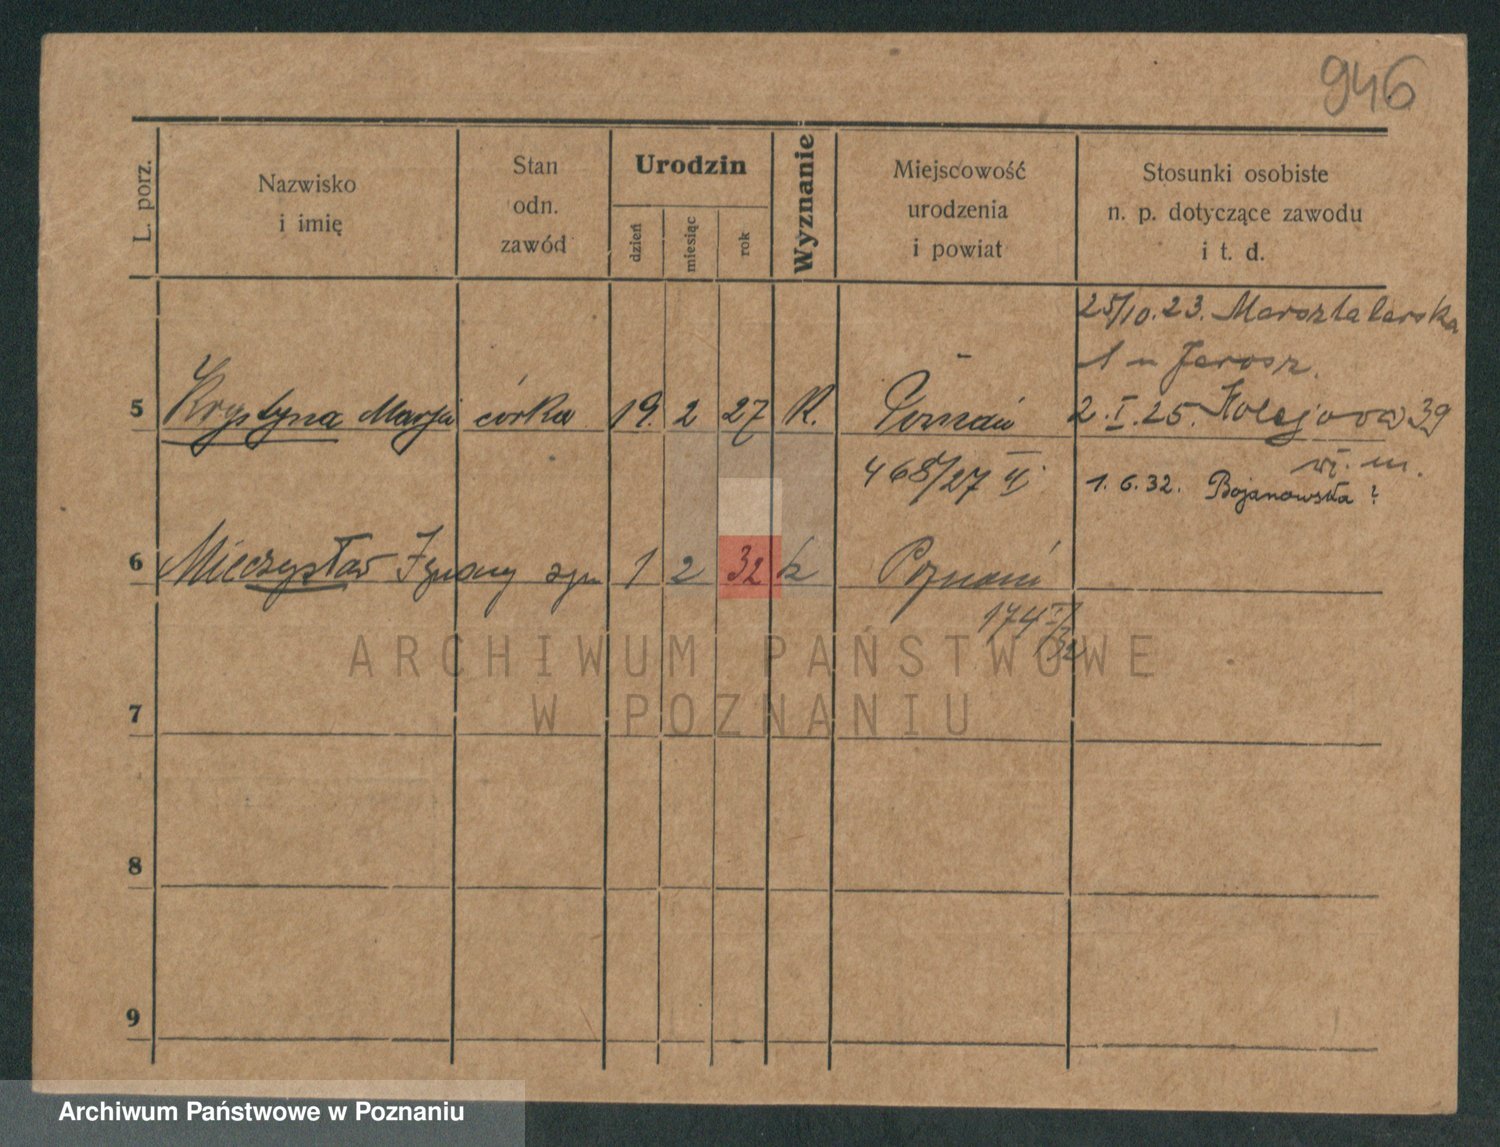 946
L. porz.
Nazwisko
i imię
Stan
odn.
zawód
Urodzin
dzień
miesiąc
rok
Wyznanie
Miejscowość
urodzenia
i powiat
Stosunki osobiste
n. p. dotyczące zawodu
i t. d.
25/10.23. Marsztalarska
1 u Jarosz.
5 Krystyna Marja córka 19. 2 27 K. Poznań 2.I.25. Kolejowa 39
468/27 II
1.6.32. Bojanowska
6 Mieczysław Ignacy syn 1 2 32 k Poznań
174 I/32
ARCHIWUM PAŃSTWOWE
W POZNANIU
7
8
9
Archiwum Państwowe w Poznaniu